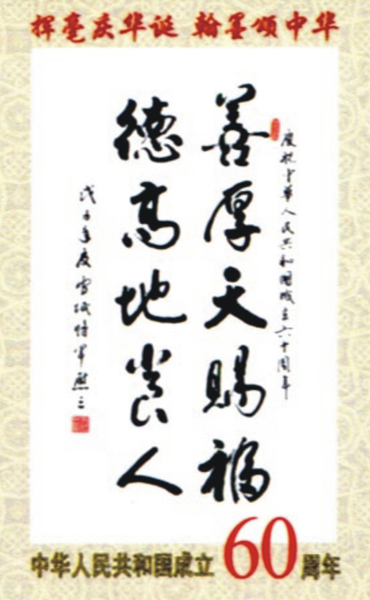 挥毫庆华诞 翰墨颂中华
慶祝中華人民共和國成立六十周年
善厚天賜福
德高地養人
戊子年夏雪城
中华人民共和国成立60周年